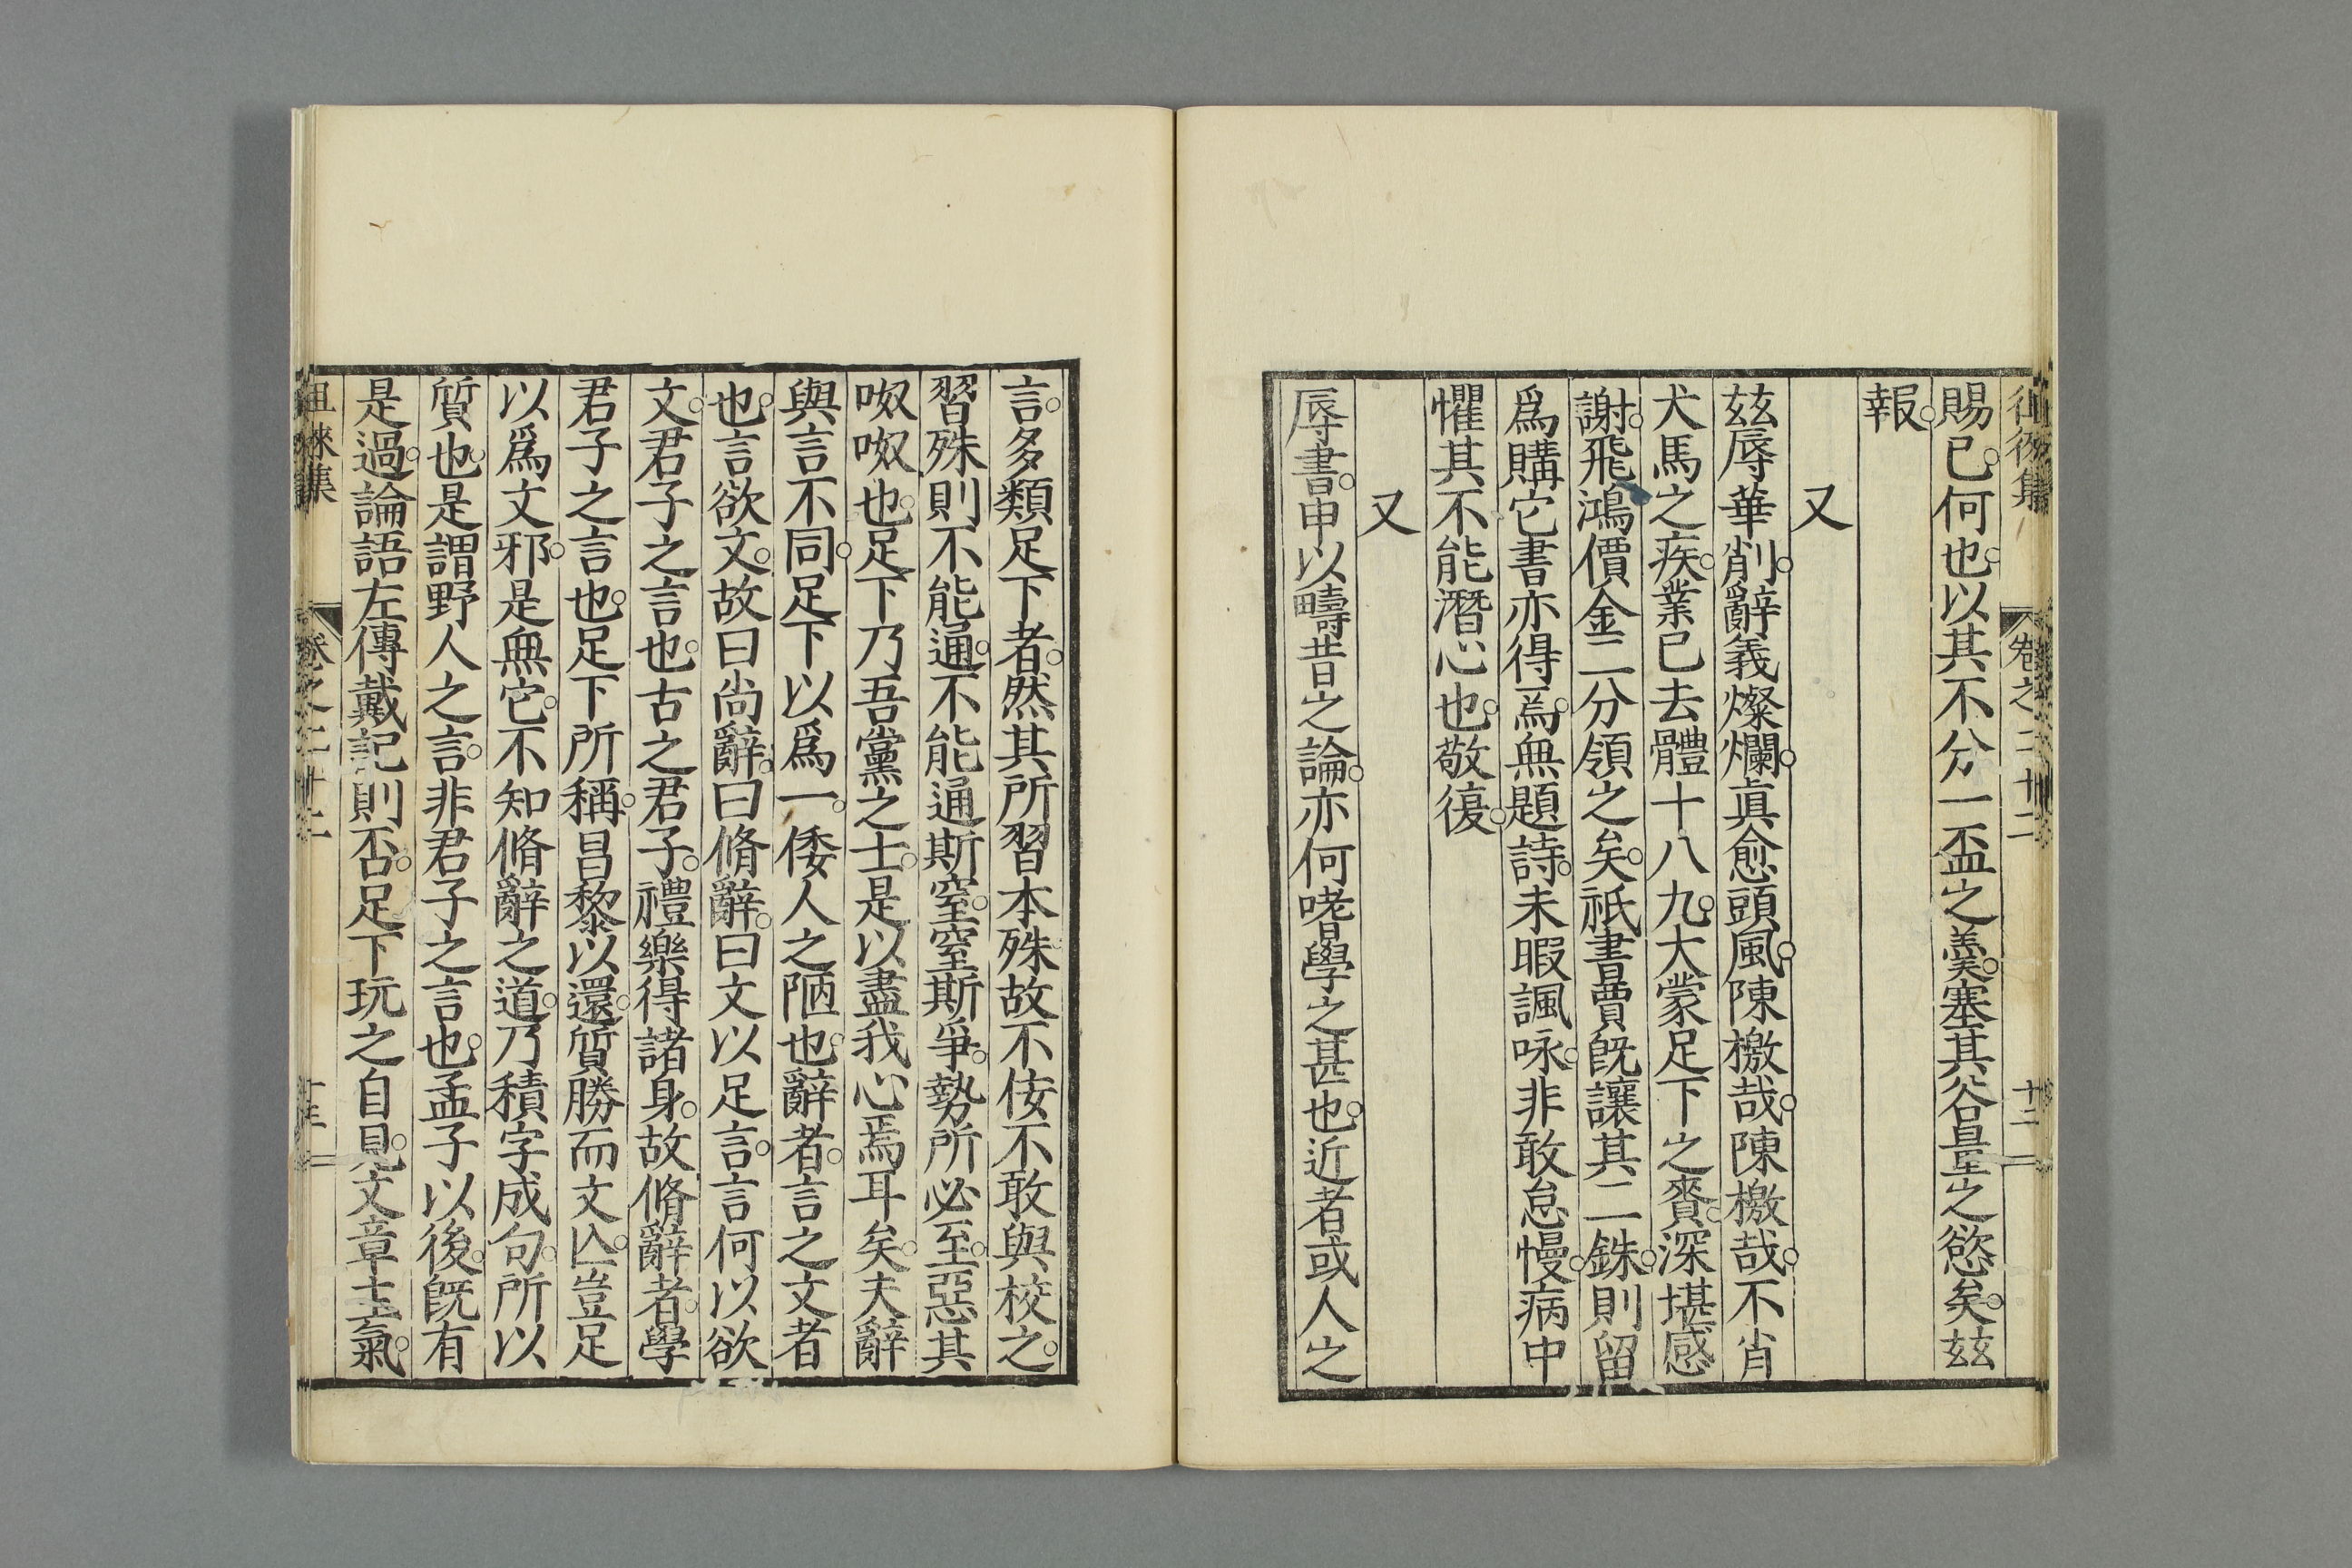 徂徠集 卷之二十二 十二
賜已何也以其不分一盃之羹塞其谷量之慾矣玆
報
又
玆辱華削辭義燦爛眞愈頭風陳檄哉陳檄哉不肖
犬馬之疾業已去體十八九大蒙足下之賚深堪感
謝飛鴻價金二分領之矣祇書賈旣讓其二銖則留
爲購它書亦得焉無題詩未暇諷咏非敢怠慢病中
懼其不能潛心也敬復
又
辱書申以疇昔之論亦何嗜學之甚也近者或人之
言多類足下者然其所習本殊故不侫不敢與校之
習殊則不能通不能通斯窒窒斯爭勢所必至惡其
呶呶也足下乃吾黨之士是以盡我心焉耳矣夫辭
與言不同足下以爲一倭人之陋也辭者言之文者
也言欲文故曰尙辭曰脩辭曰文以足言言何以欲
文君子之言也古之君子禮樂得諸身故脩辭者學
君子之言也足下所稱昌黎以還質勝而文亾豈足
以爲文邪是無它不知脩辭之道乃積字成句所以
質也是謂野人之言非君子之言也孟子以後旣有
是過論語左傳戴記則否足下玩之自見文章主氣
徂徠集 卷之二十二 十三